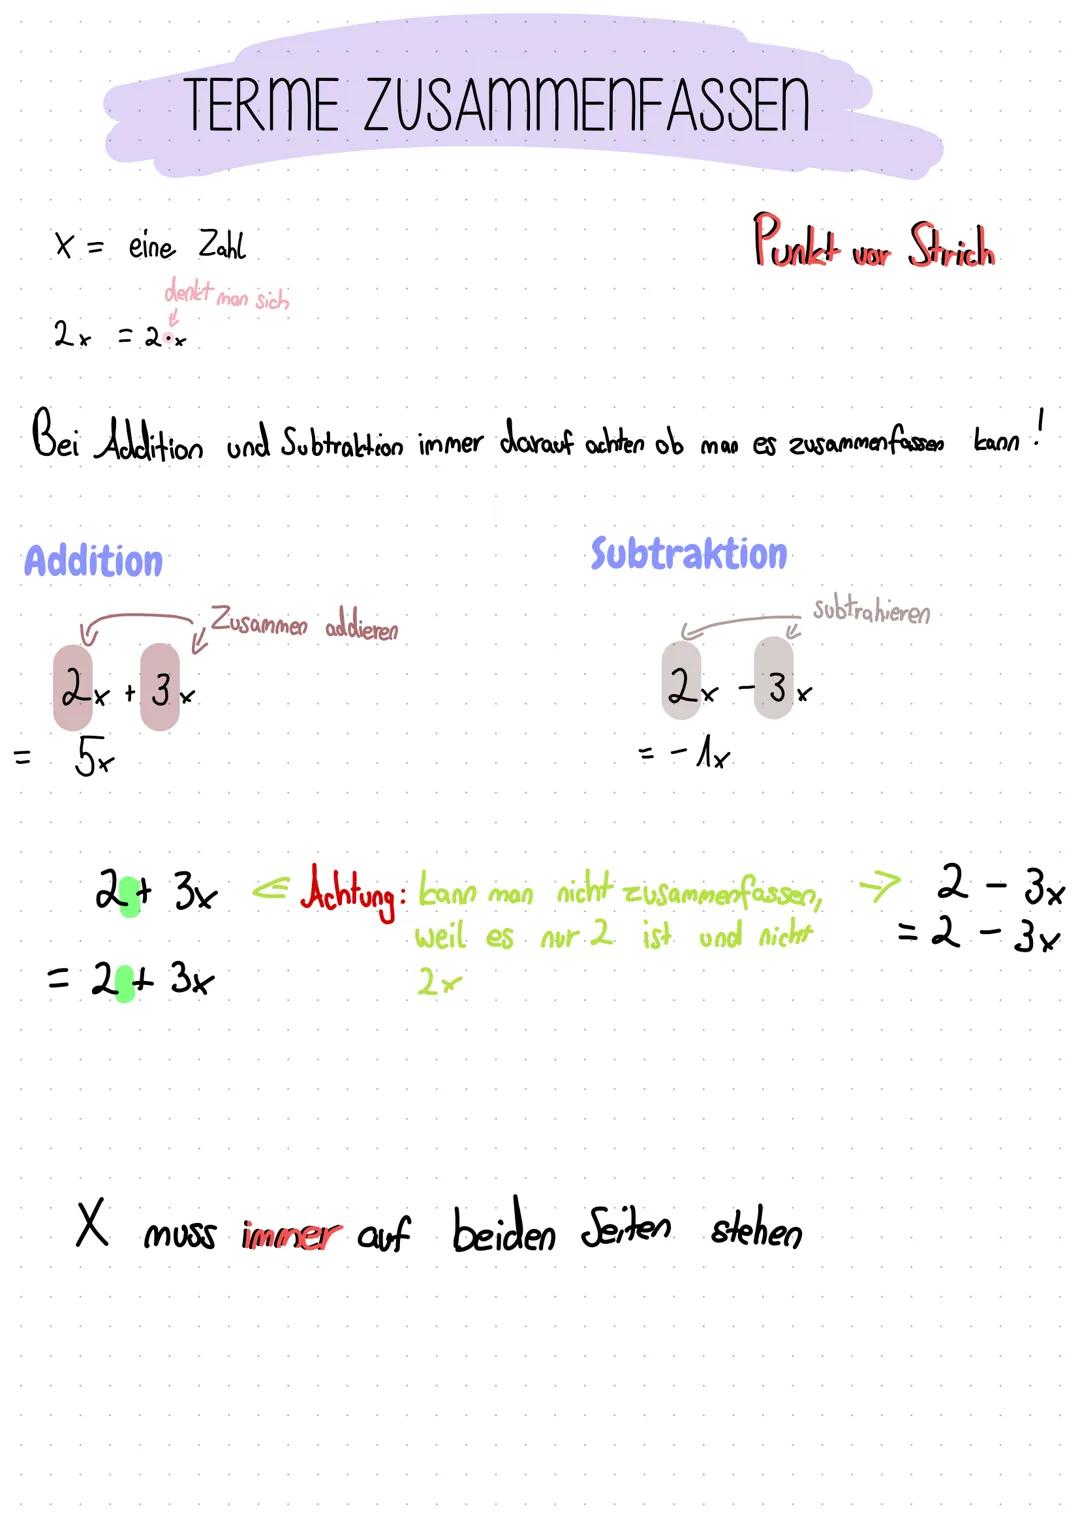 TERME ZUSAMMENFASSEN
x = eine Zahl
Punkt vor Strich
denkt man sich
2x = 2·x
Bei Addition und Subtraktion immer darauf achten ob man es zusammenfassen kann!
Addition
Zusammen addieren
2x + 3x
= 5x
Subtraktion
subtrahieren
2x - 3x
= -1x
2 + 3x
= 2 + 3x
<= Achtung: kann man nicht zusammenfassen, =>
weil es nur 2 ist und nicht
2x
2 - 3x
= 2 - 3x
X muss immer auf beiden Seiten stehen